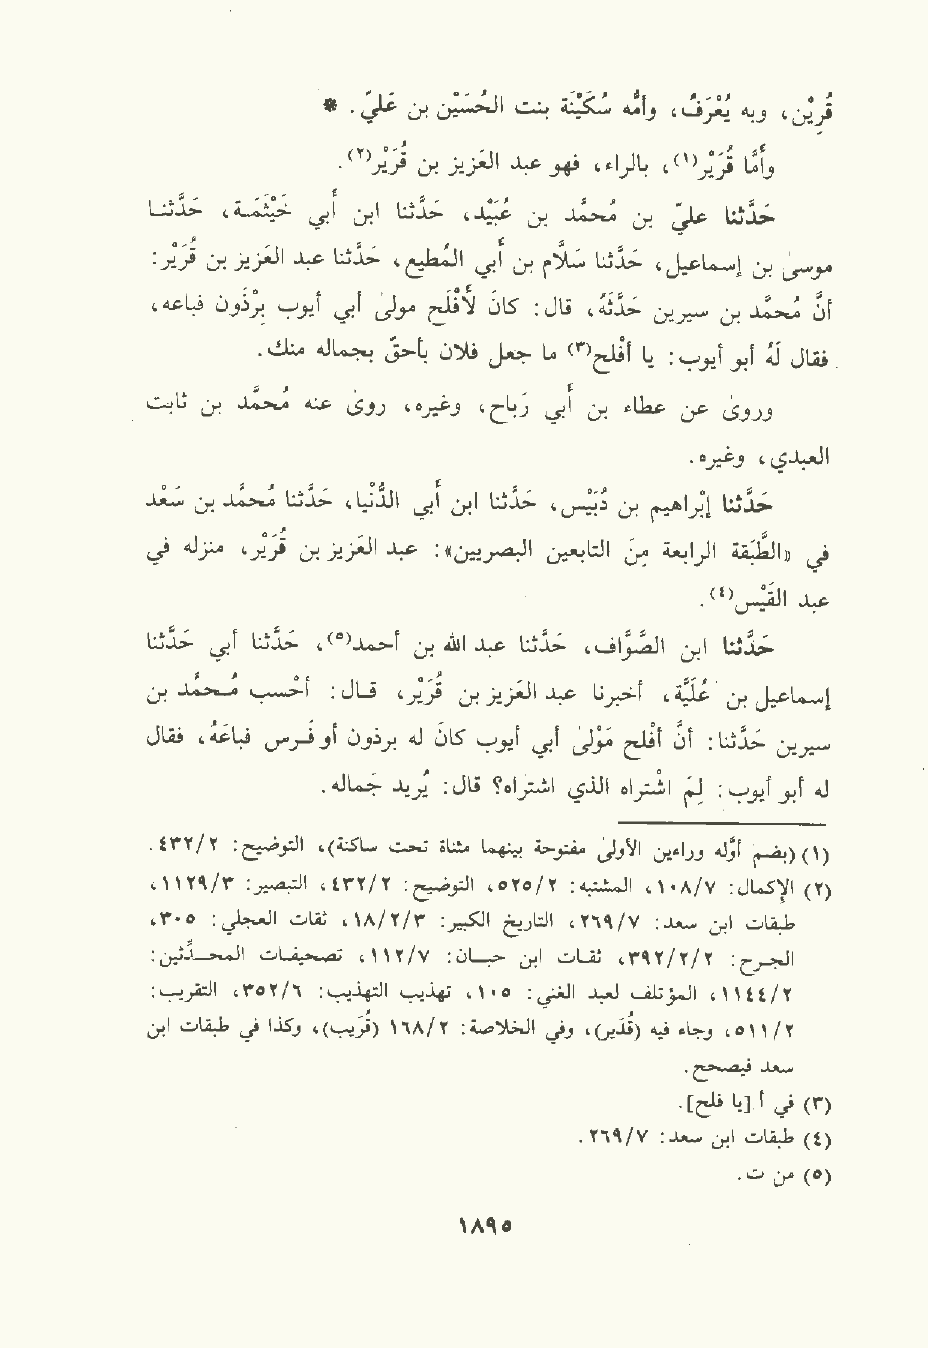 قُرِيْن، وبه يُعْرَفُ، وأمُّه سُكَيْنَة بنت الحُسَيْن بن عَليّ. *
وأمَّا قُرَيْر(١)، بالراء، فهو عبد العَزيز بن قُرَيْر(٢).
حَدَّثنا عليّ بن محمَّد بن عُبَيْد، حَدَّثنا ابن أبي خَيْثَمَة، حَدَّثنا
موسى بن إسماعيل، حَدَّثنا سَلَّام بن أبي المُطيع، حَدَّثنا عبد العَزيز بن قُرَيْر:
أنَّ مُحمَّد بن سيرين حَدَّثَهُ، قال: كانَ لأفْلَح مولى أبي أيوب بِرْذَون فباعه،
فقال لَهُ أبو أيوب: يا أفْلح(٣) ما جعل فلان بأحقّ بجماله منك.
وروى عن عطاء بن أبي رَباح، وغيره، روى عنه مُحمَّد بن ثابت
العبدي، وغيره.
حَدَّثنا إبْراهيم بن دُبَيْس، حَدَّثنا ابن أبي الدُّنْيا، حَدَّثنا مُحمَّد بن سَعْد
في «الطَّبَقة الرابعة مِنَ التابعين البصريين»: عبد العَزيز بن قُرَيْر، منزله في
عبد القَيْس(٤).
حَدَّثنا ابن الصَّوَّاف، حَدَّثنا عبد الله بن أحمد(٥)، حَدَّثنا أبي حَدَّثنا
إسماعيل بن عُلَيَّة، أخبرنا عبد العَزيز بن قُرَيْر، قال: أحْسب مُحمَّد بن
سيرين حَدَّثنا: أنَّ أفلح مَوْلى أبي أيوب كانَ له برذون أو فَرس فباعَهُ، فقال
له أبو أيوب: لِمَ اشْتراه الذي اشتراه؟ قال: يُريد جَماله.
(١) (بضم أوَّله وراءين الأولى مفتوحة بينهما مثناة تحت ساكنة)، التوضيح: ٤٣٢/٢.
(٢) الإكمال: ١٠٨/٧، المشتبه: ٥٢٥/٢، التوضيح: ٤٣٢/٢، التبصير: ١١٢٩/٣،
طبقات ابن سعد: ٢٦٩/٧، التاريخ الكبير: ١٨/٢/٣، ثقات العجلي: ٣٠٥،
الجرح: ٣٩٢/٢/٢، ثقات ابن حبان: ١١٢/٧، تصحيفات المحدِّثين:
١١٤٤/٢، المؤتلف لعبد الغني: ١٠٥، تهذيب التهذيب: ٣٥٢/٦، التقريب:
٥١١/٢، وجاء فيه (قُدَير)، وفي الخلاصة: ١٦٨/٢ (قُرَيب)، وكذا في طبقات ابن
سعد فيصحح.
(٣) في أ [يا فلح].
(٤) طبقات ابن سعد: ٢٦٩/٧.
(٥) من ت.
١٨٩٥